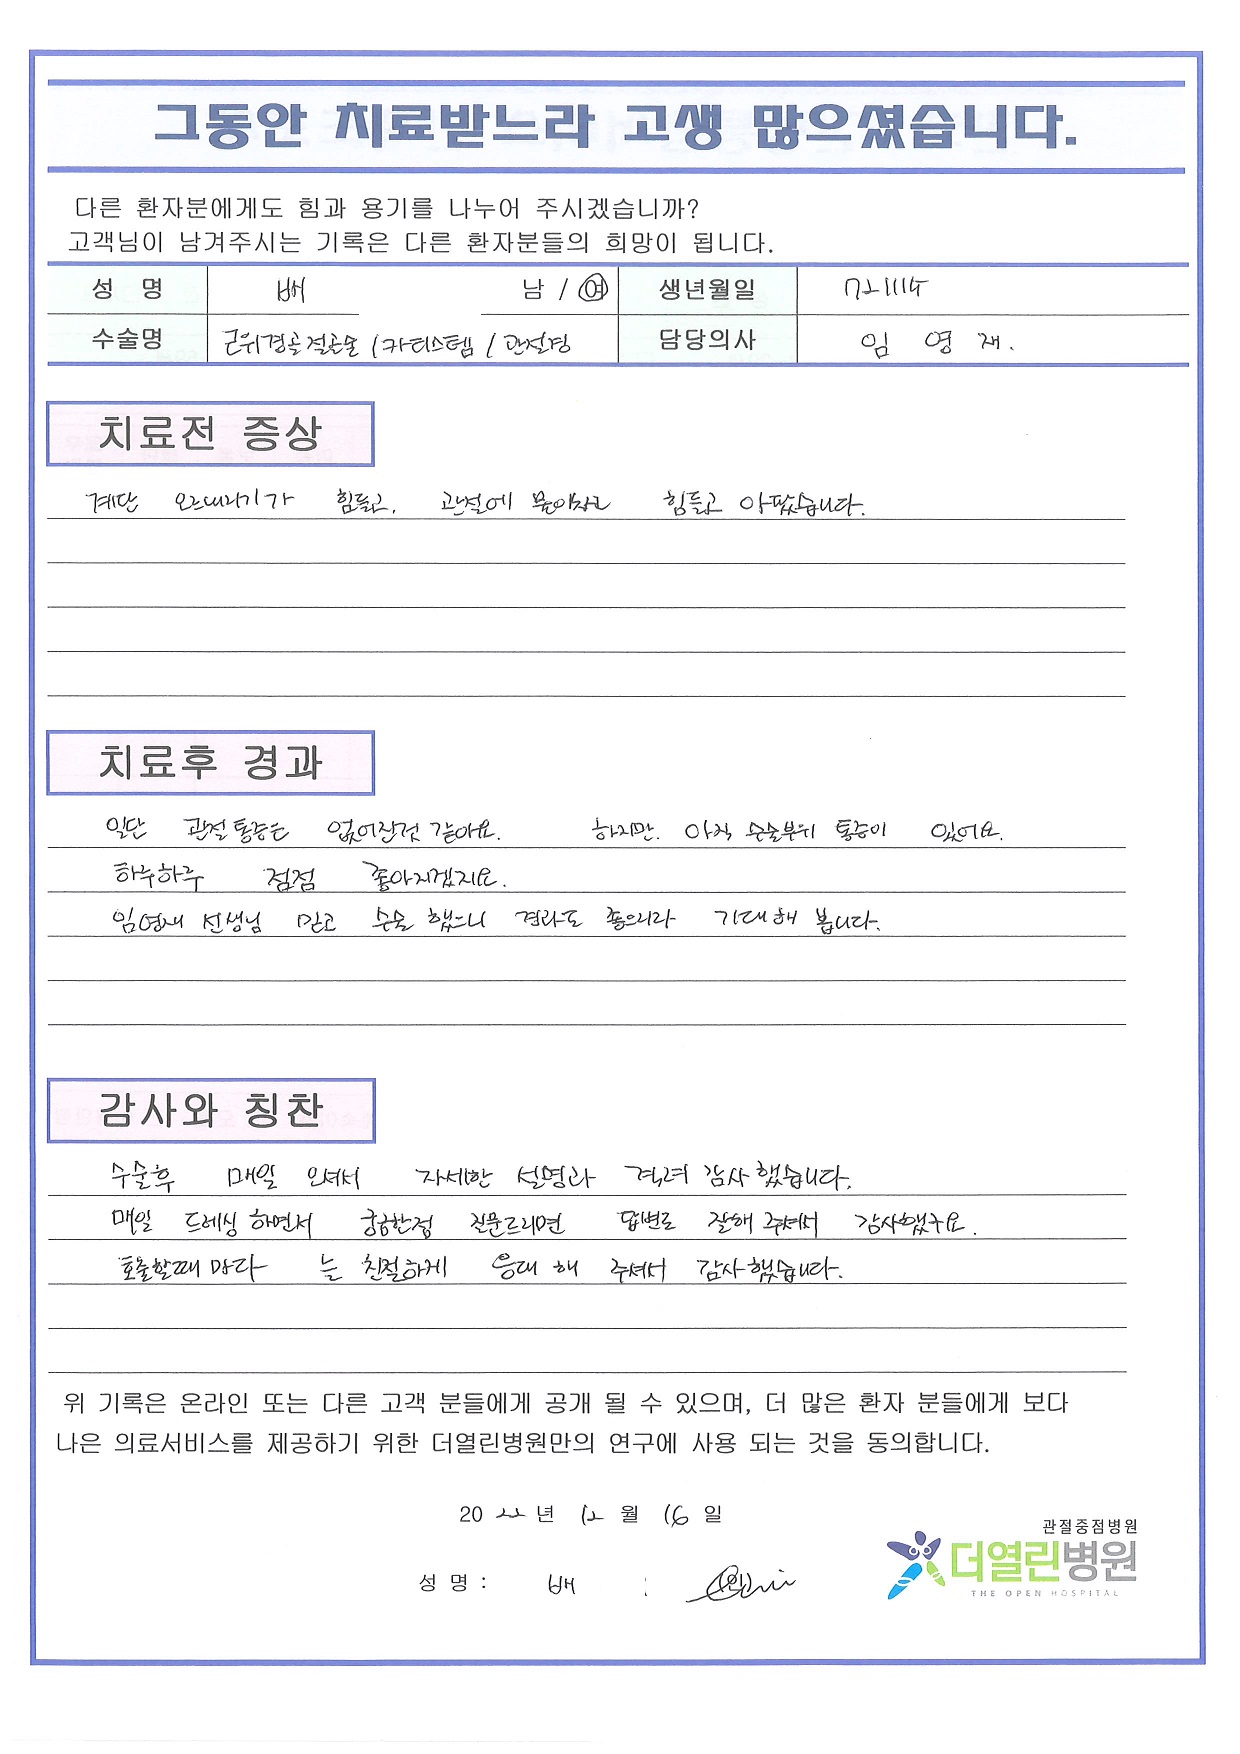 그동안 치료받느라 고생 많으셨습니다.
다른 환자분에게도 힘과 용기를 나누어 주시겠습니까?
고객님이 남겨주시는 기록은 다른 환자분들의 희망이 됩니다.
성 명 배 남 / 여 생년월일 721114
수술명 근위경골절골술 / 카티스템 / 관절경 담당의사 임 영 재.
치료전 증상
계단 오르내리기가 힘들고, 관절에 물이차고 힘들고 아팠습니다.
치료후 경과
일단 관절통증은 없어진것 같아요. 하지만. 아직 수술부위 통증이 있어요.
하루하루 점점 좋아지겠지요.
임영재 선생님 믿고 수술 했으니 경과도 좋으리라 기대해 봅니다.
감사와 칭찬
수술후 매일 오셔서 자세한 설명과 격려 감사했습니다.
매일 드레싱 하면서 궁금한점 질문드리면 답변도 잘해 주셔서 감사했구요.
호출할때 마다 늘 친절하게 응대 해 주셔서 감사했습니다.
위 기록은 온라인 또는 다른 고객 분들에게 공개 될 수 있으며, 더 많은 환자 분들에게 보다
나은 의료서비스를 제공하기 위한 더열린병원만의 연구에 사용 되는 것을 동의합니다.
20 22 년 12 월 16 일
관절중점병원
더열린병원
THE OPEN HOSPITAL
성 명 : 배